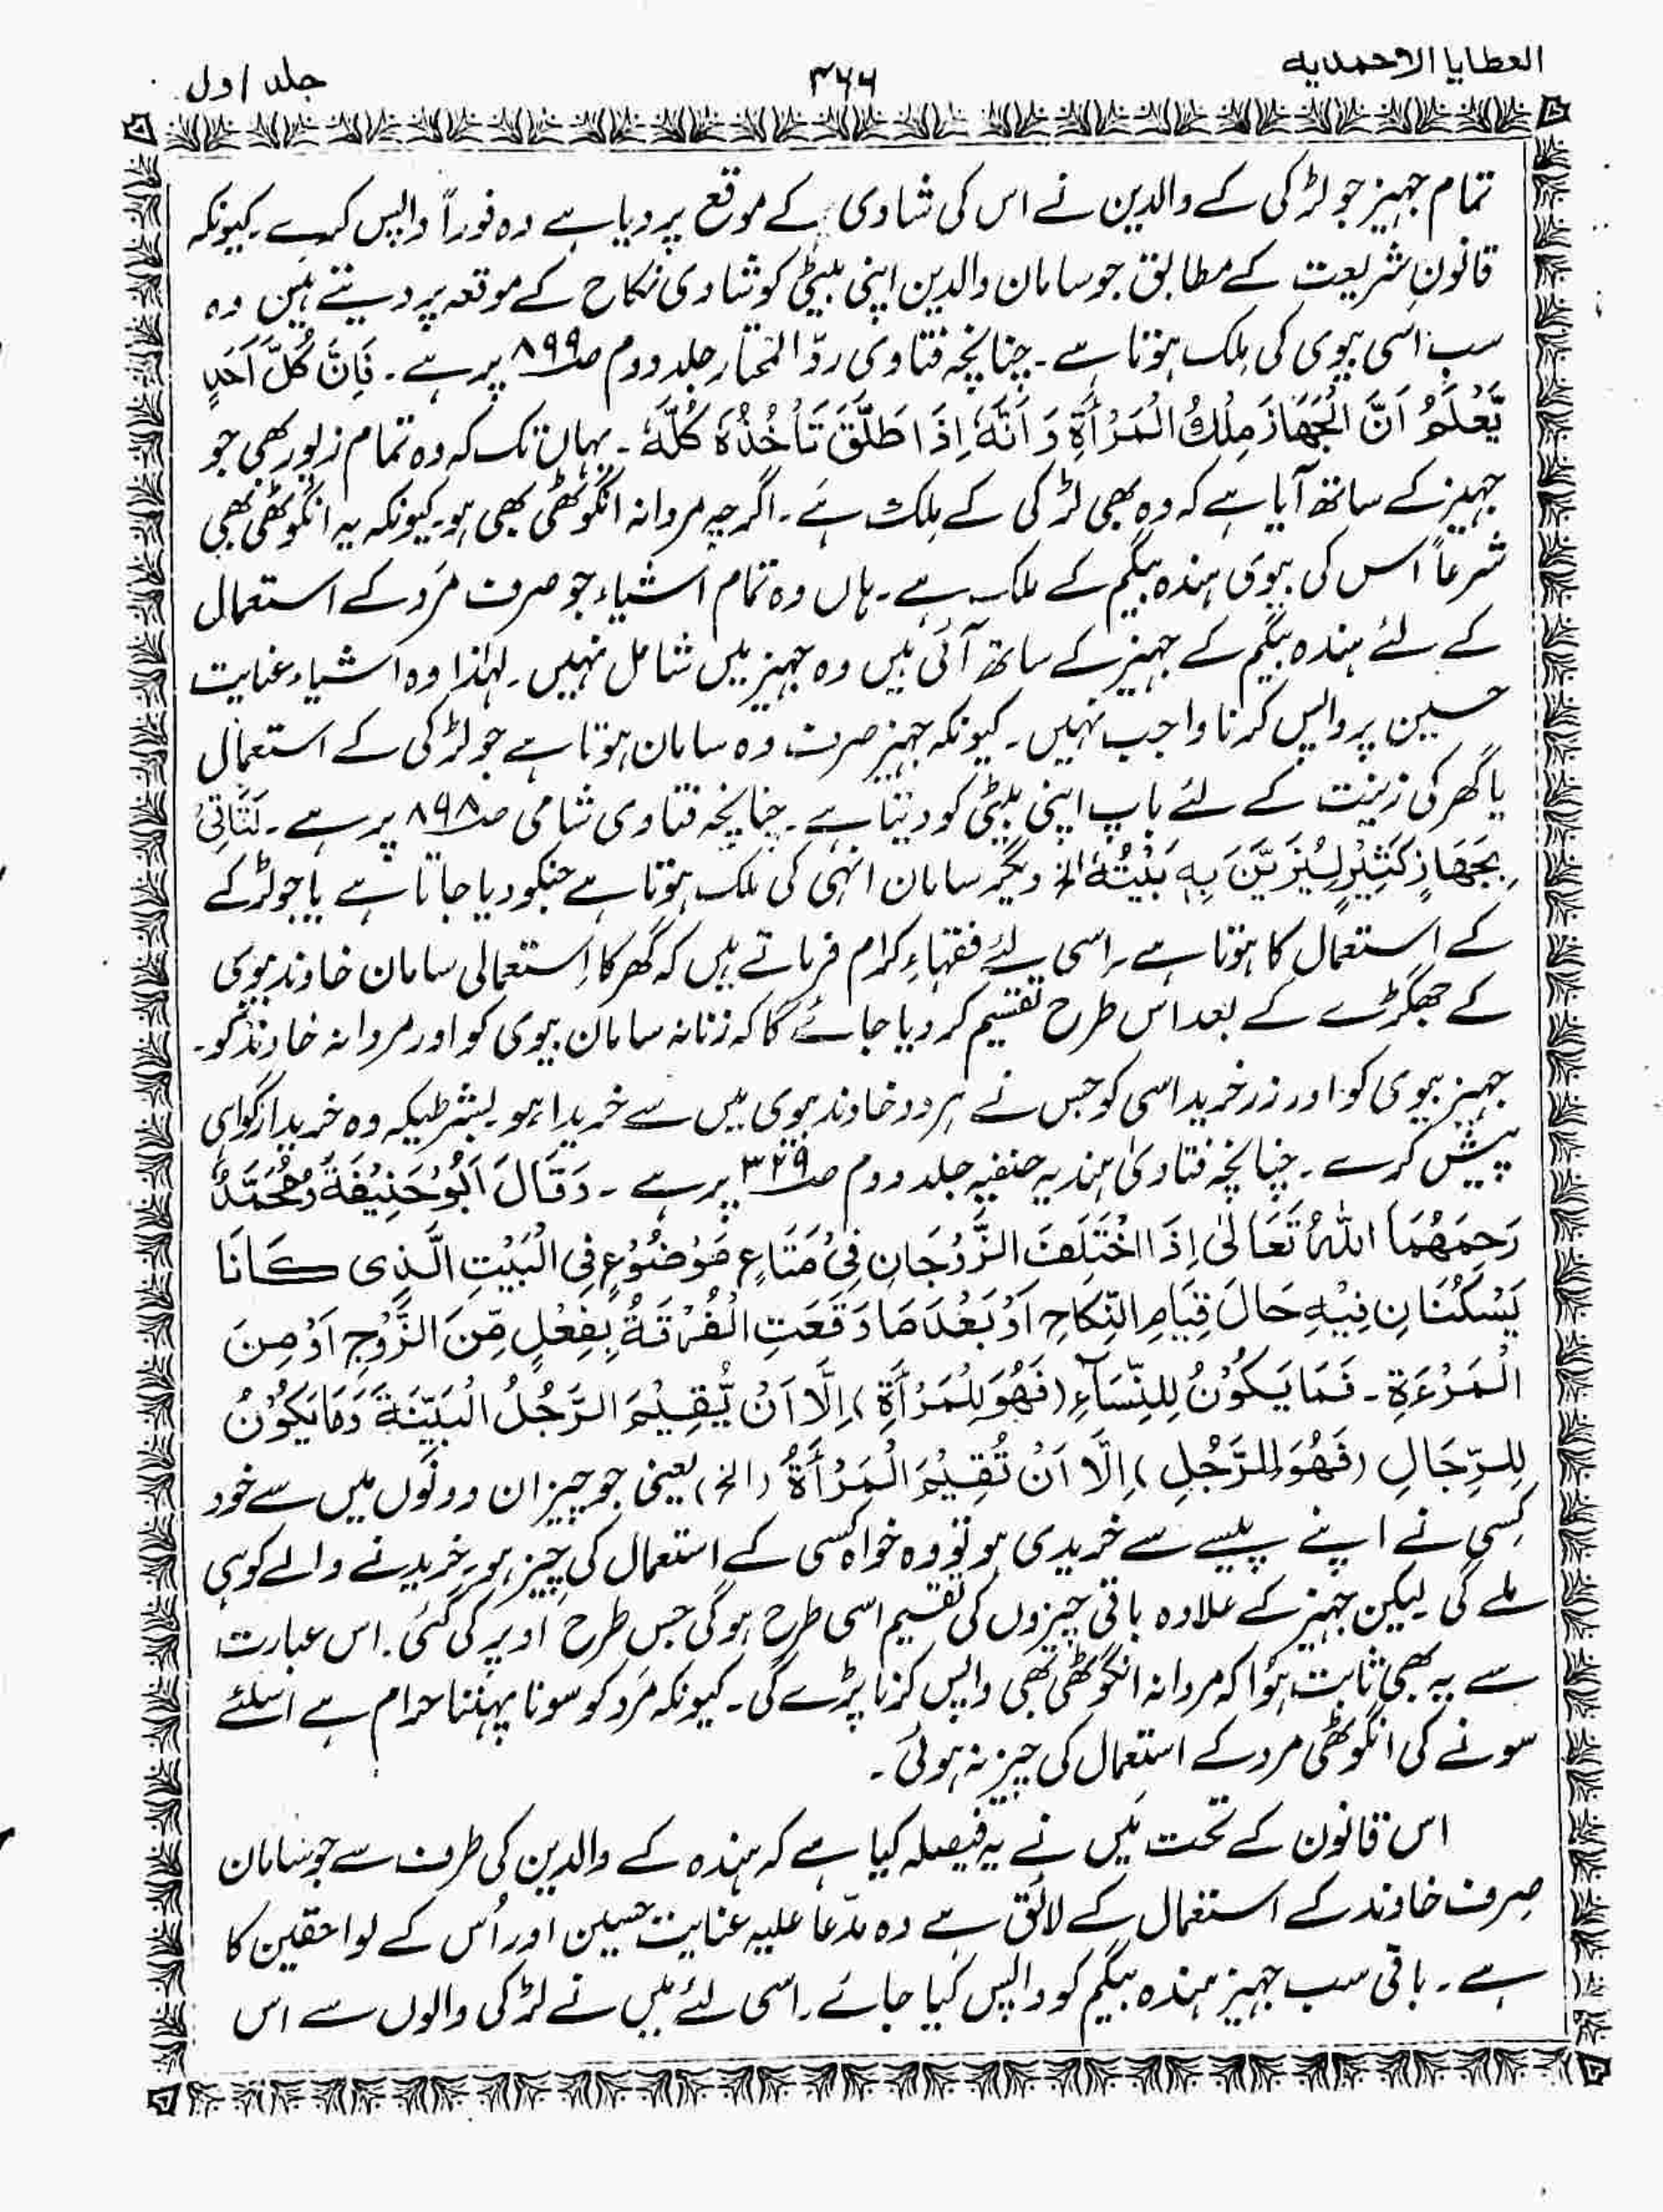 العطایا الاحمدیہ
۳۶۶
جلد اول
تمام جہیز جو لڑکی کے والدین نے اس کی شادی کے موقع پر دیا ہے وہ فوراً واپس کرے۔ کیونکہ
قانونِ شریعت کے مطابق جو سامان والدین اپنی بیٹی کو شادی نکاح کے موقعہ پر دیتے ہیں وہ
سب اسی بیوی کی ملک ہوتا ہے۔ چنانچہ فتاوی ردّ المختار جلد دوم صـ۸۹۹ پر ہے۔ فَاِنَّ کُلَّ اَحَدٍ
یَّعْلَمُ اَنَّ الْجَھَازَ مِلْكُ الْمَرْأَةِ وَ اَنَّهٗ اِذَا طَلَّقَ تَأْخُذُهٗ كُلَّهٗ۔ یہاں تک کہ وہ تمام زیور بھی جو
جہیز کے ساتھ آیا ہے کہ وہ بھی لڑکی کے ملک ہے۔ اگرچہ مردانہ انگوٹھی بھی ہو۔ کیونکہ یہ انگوٹھی بھی
شرعاً اس کی بیوی ہندہ بیگم کے ملک ہے۔ ہاں وہ تمام اشیاء جو صرف مَرد کے استعمال
کے لئے ہندہ بیگم کے جہیز کے ساتھ آئی ہیں وہ جہیز میں شامل نہیں۔ لہٰذا وہ اشیاء عنایت
حسین پر واپس کرنا واجب نہیں۔ کیونکہ جہیز صرف وہ سامان ہوتا ہے جو لڑکی کے استعمال
یا گھر کی زینت کے لئے باپ اپنی بیٹی کو دیتا ہے۔ چنانچہ فتاوی شامی صـ۸۹۸ پر ہے۔ لَتَاْتِیْ
بِجَھَازٍ کَثِیْرٍ لِیُزَیَّنَ بِہٖ بَیْتُہٗ الخ دیگر سامان انہی کی ملک ہوتا ہے جنکو دیا جاتا ہے یا جو لڑکے
کے استعمال کا ہوتا ہے۔ اسی لئے فقہاءِ کرام فرماتے ہیں کہ گھر کا اِستعمالی سامان خاوند بیوی
کے جھگڑے کے بعد اس طرح تقسیم کر دیا جائے گا کہ زنانہ سامان بیوی کو اور مردانہ خاوند کو۔
جہیز بیوی کو اور زر خرید اسی کو جس نے ہر دو خاوند بیوی میں سے خریدا ہو۔ بشرطیکہ وہ خریدار گواہی
پیش کرے۔ چنانچہ فتاویٰ ہندیہ حنفیہ جلد دوم صـ۳۲۹ پر ہے۔ وَقَالَ اَبُوْحَنِیْفَةَ وَمُحَمَّدٌ
رَحِمَهُمَا اللهُ تَعَالٰى اِذَا اخْتَلَفَ الزَّوْجَانِ فِیْ مَتَاعٍ مَوْضُوْعٍ فِی الْبَیْتِ الَّذِی کَانَا
یَسْکُنَانِ فِیْهِ حَالَ قِیَامِ النِّکَاحِ اَوْ بَعْدَ مَا وَقَعَتِ الْفُرْقَةُ بِفِعْلٍ مِّنَ الزَّوْجِ اَوْ مِنَ
الْمَرْءَةِ۔ فَمَا یَکُوْنُ لِلنِّسَآءِ (فَهُوَ لِلْمَرْأَةِ) اِلَّا اَنْ یُّقِیْمَ الرَّجُلُ الْبَیِّنَةَ وَمَا یَکُوْنُ
لِلرِّجَالِ (فَهُوَ لِلرَّجُلِ) اِلَّا اَنْ تُقِیْمَ الْمَرْأَةُ (الخ) یعنی جو چیز ان دونوں میں سے خود
کِسی نے اپنے پیسے سے خریدی ہو تو وہ خواہ کسی کے استعمال کی چیز ہو۔ خریدنے والے کو ہی
ملے گی۔ لیکن جہیز کے علاوہ باقی چیزوں کی تقسیم اسی طرح ہوگی جس طرح اوپر کی گئی۔ اس عبارت
سے یہ بھی ثابت ہُوا کہ مردانہ انگوٹھی بھی واپس کرنا پڑے گی۔ کیونکہ مَرد کو سونا پہننا حرام ہے اسلئے
سونے کی انگوٹھی مرد کے استعمال کی چیز نہ ہوئی۔
اس قانون کے تحت مَیں نے یہ فیصلہ کیا ہے کہ ہندہ کے والدین کی طرف سے جو سامان
صِرف خاوند کے استعمال کے لائق ہے وہ مدّعا علیہ عنایت حسین اور اُس کے لواحقین کا
ہے۔ باقی سب جہیز ہندہ بیگم کو واپس کیا جائے۔ اسی لئے میں نے لڑکی والوں سے اس